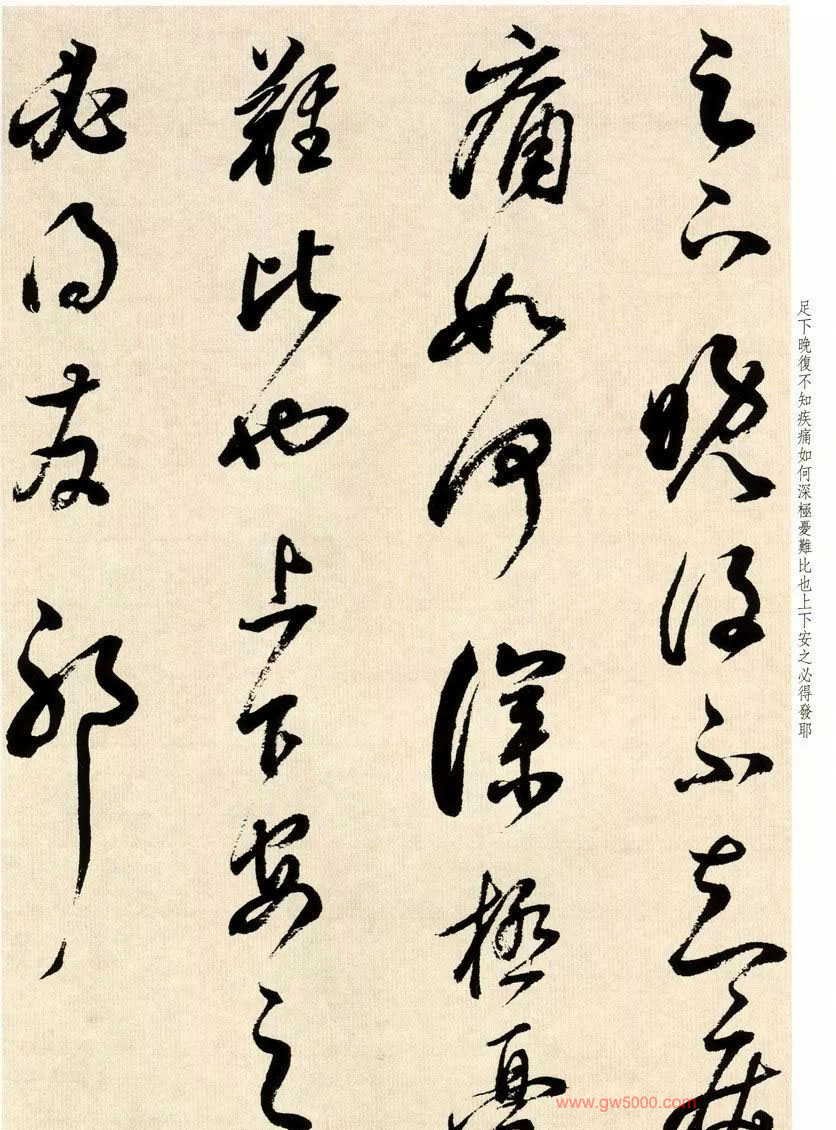 足下晚復不知疾
痛如何深極憂
難比也上下安之
必得發耶
足下晚復不知疾痛如何深極憂難比也上下安之必得發耶
www.gw5000.com